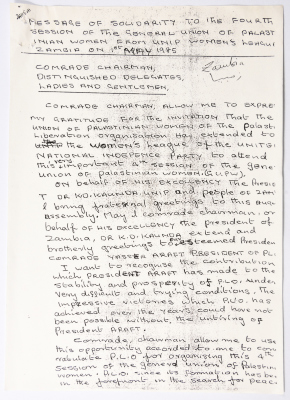 MESSAGE OF SOLIDARITY TO THE FOURTH
SESSION OF THE GENERAL UNION OF PALAST
INIAN WOMEN FROM UNIP WOMEN'S LEAGUE
ZAMBIA ON 1ST MAY 1985
Zambia
COMRADE CHAIRMAN,
DISTINGUISHED DELEGATES,
LADIES AND GENTLEMEN,
COMRADE CHAIRMAN, ALLOW ME TO EXPRE
MY GRATITUDE FOR THE INVITATION THAT THE
UNION OF PALASTINIAN WOMEN OF THE Palasti
Liberation organisation Has extended to
the Women's league of the UNITED
NATIONAL INDEPENCE PARTY to attend
this important 4th SESSION of the gene
UNION of palastinian woman
ON behalf OF HIS EXCELLENCY THE PRESI
T DR KD.KAUNDA, UNIP and people of ZAM
I bring fraternal greetings to this
assembly. May I comrade chairman, or
behalf OF HIS EXCELLENCY the president of
Zambia, DR K.D KAUNDA extend and
brotherly greetings to esteemed Presiden
COMRADE YASSER ARAFT PRESIDENT OF PL
I want to recognise the contribution
which PRESIDENT ARAFT has made to the
stability and prosperity of P.L.O. Under
Very difficult and trying conditions, The
impressive victories which P.L.O. has
achieved over the years could have not
been possible without the untiring of
President ARAFT.
Comrade, chairman allow me to use
this opportunity accorded to me to con
ratulate P.L.O for organising this 4th
session of the general union of Palastin
women. P.L.O since its formation has been
in the forefront in the search for peac